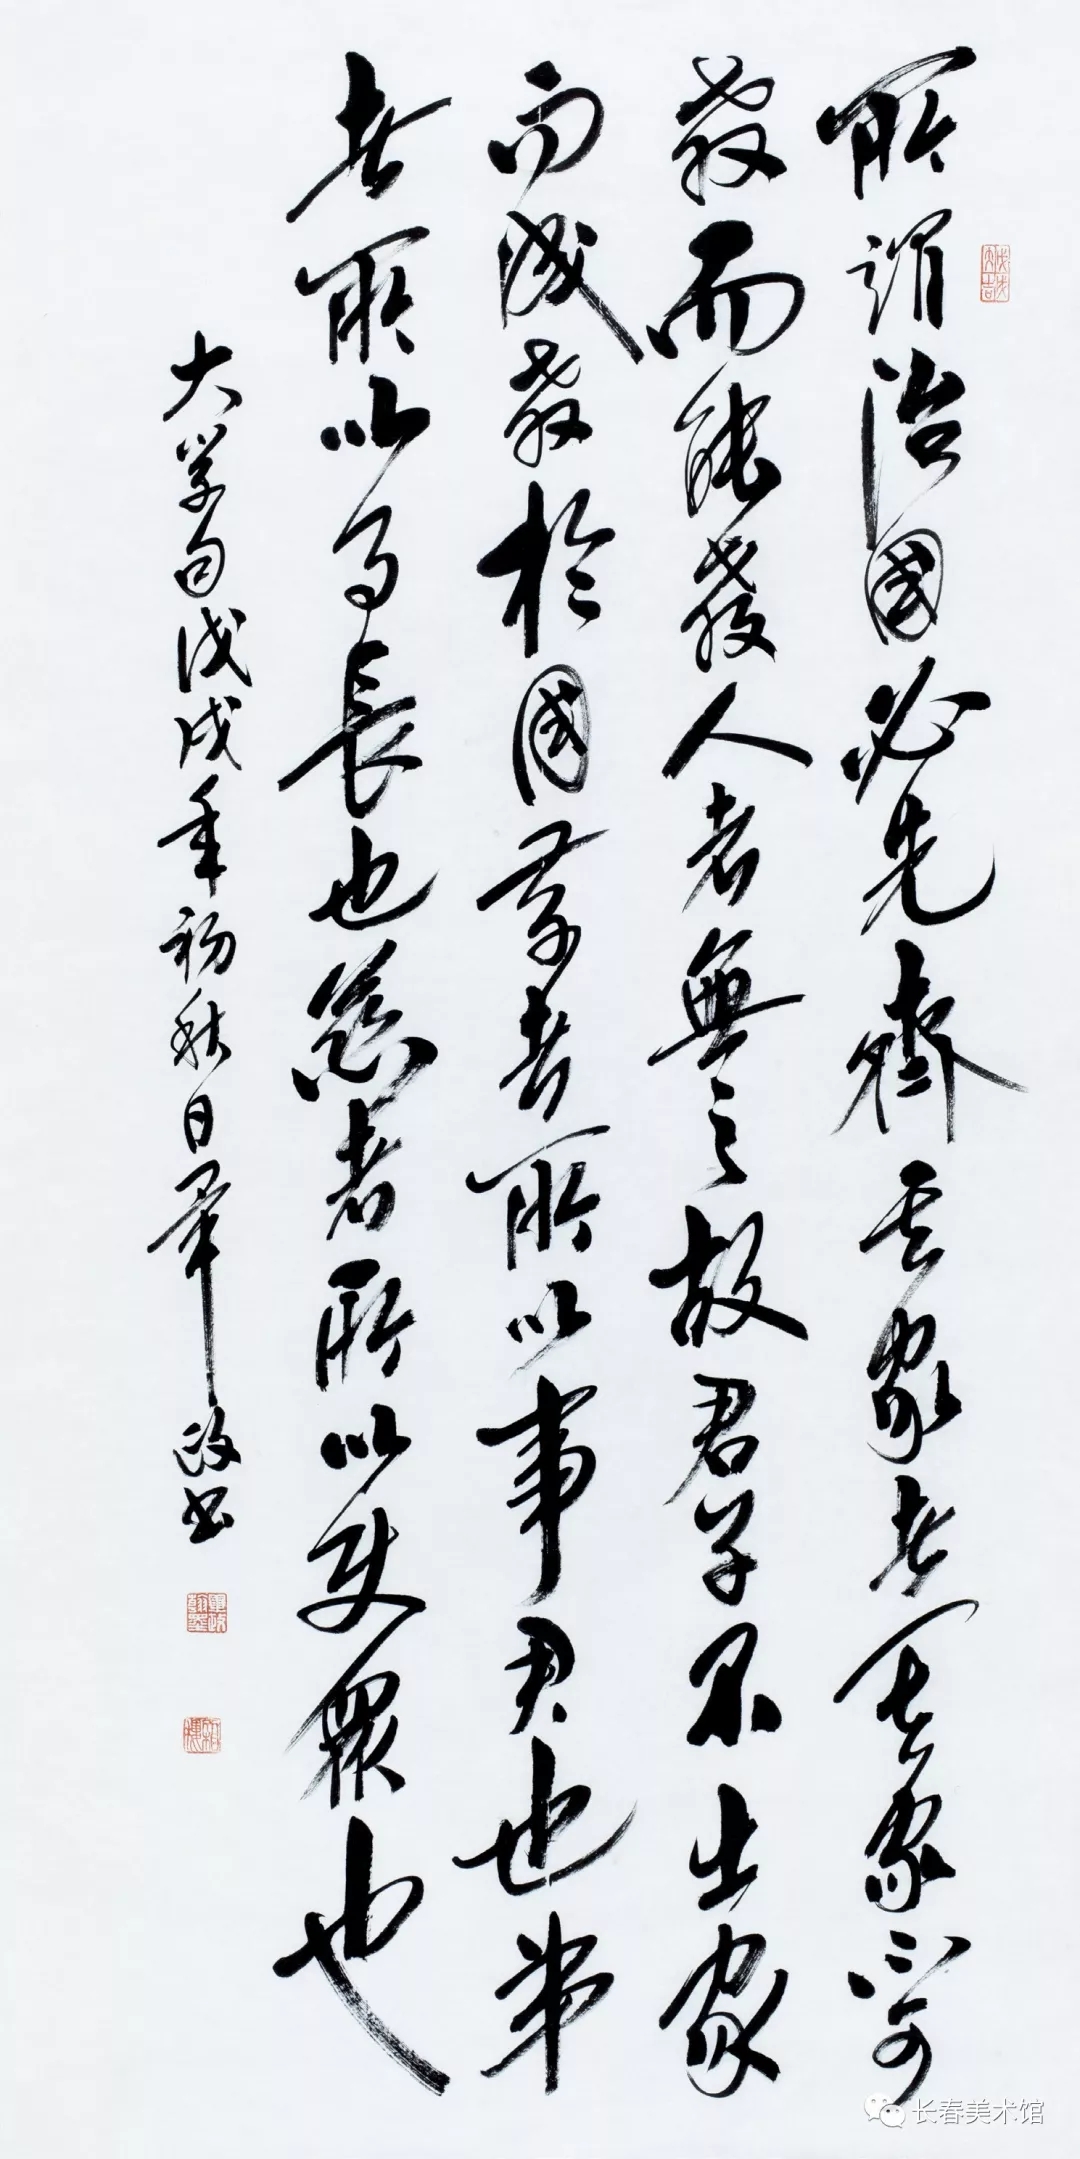 戊戌大吉
所謂治國必先齊其家者其家不可
教而能教人者無之故君子不出家
而成教於國孝者所以事君也弟
者所以事長也慈者所以使眾也
大学句戊戌年初秋日軍政书
軍政翰墨
长春美术馆